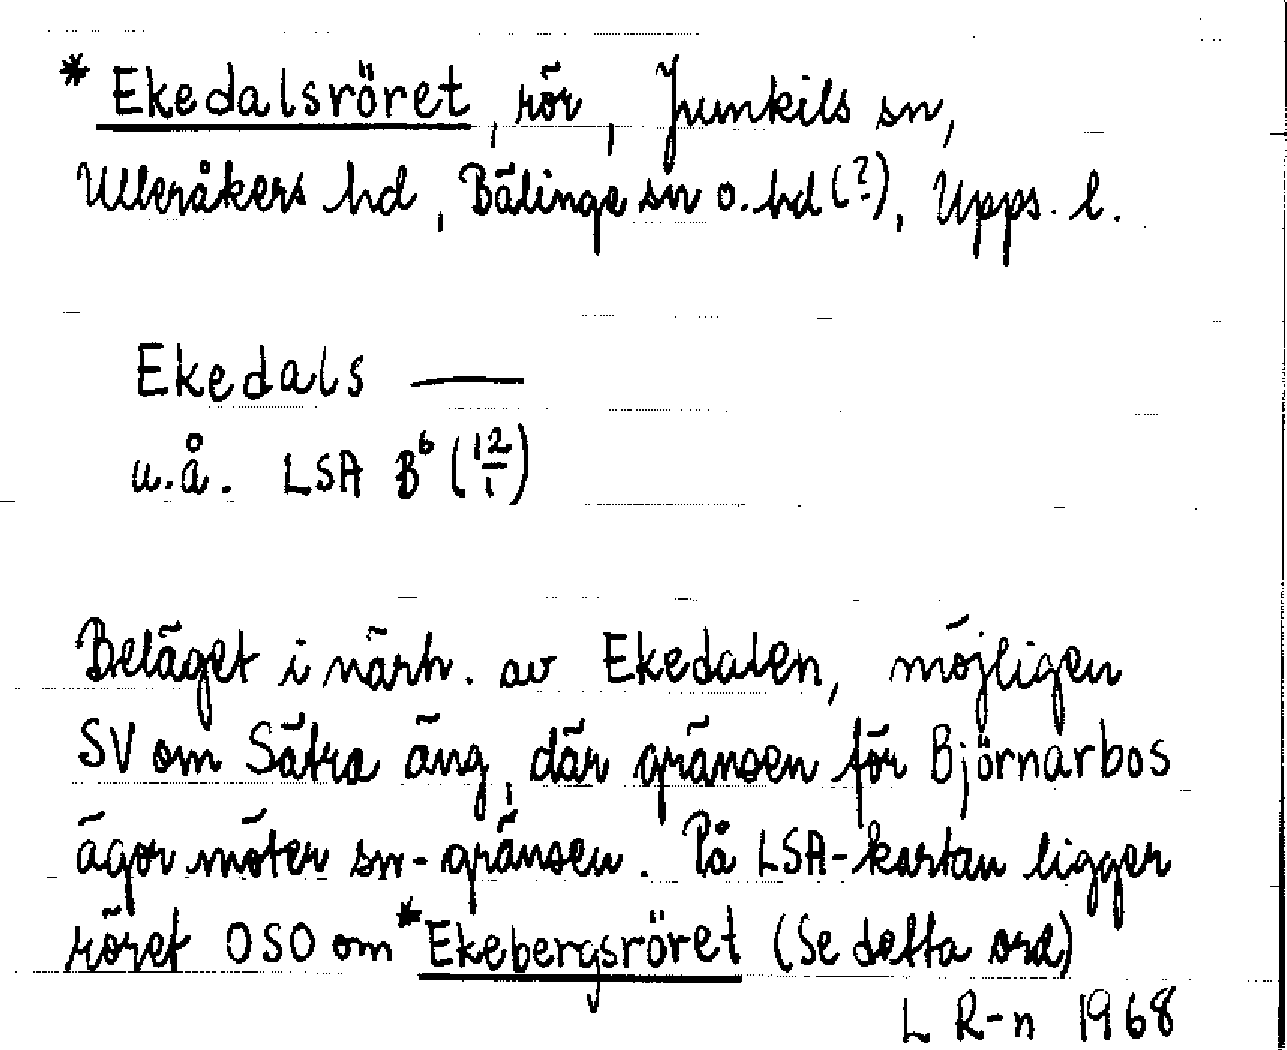 * Ekedalsröret, rör, Jumkils sn,
Ulleråkers hd, Bälinge sn o. hd (?), Upps. l.
Ekedals ——
u.å. LSA B⁶ (12/1)
Beläget i närh. av Ekedalen, möjligen
SV om Sätra äng, där gränsen för Björnarbos
ägor möter sn-gränsen. På LSA-kartan ligger
röret OSO om *Ekebergsröret (Se detta ord)
L R-n 1968